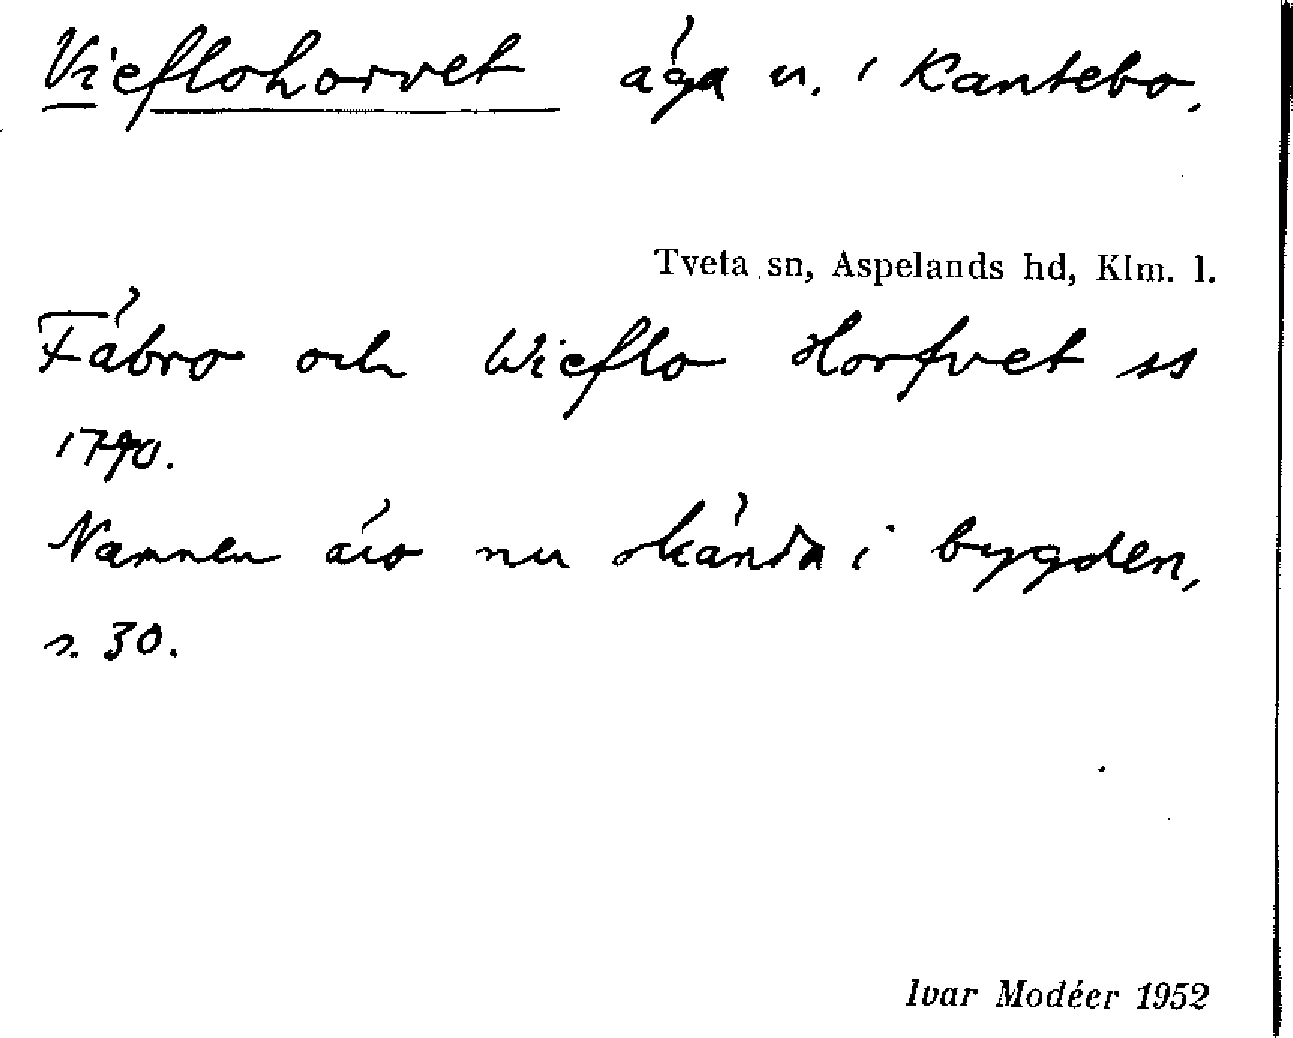 Vieflohorvet äga n. i Kantebo,
Tveta sn, Aspelands hd, Klm. l.
Fäbro och Wieflo Horfvet ss
1790.
Namnen äro nu okända i bygden,
s. 30.
Ivar Modéer 1952